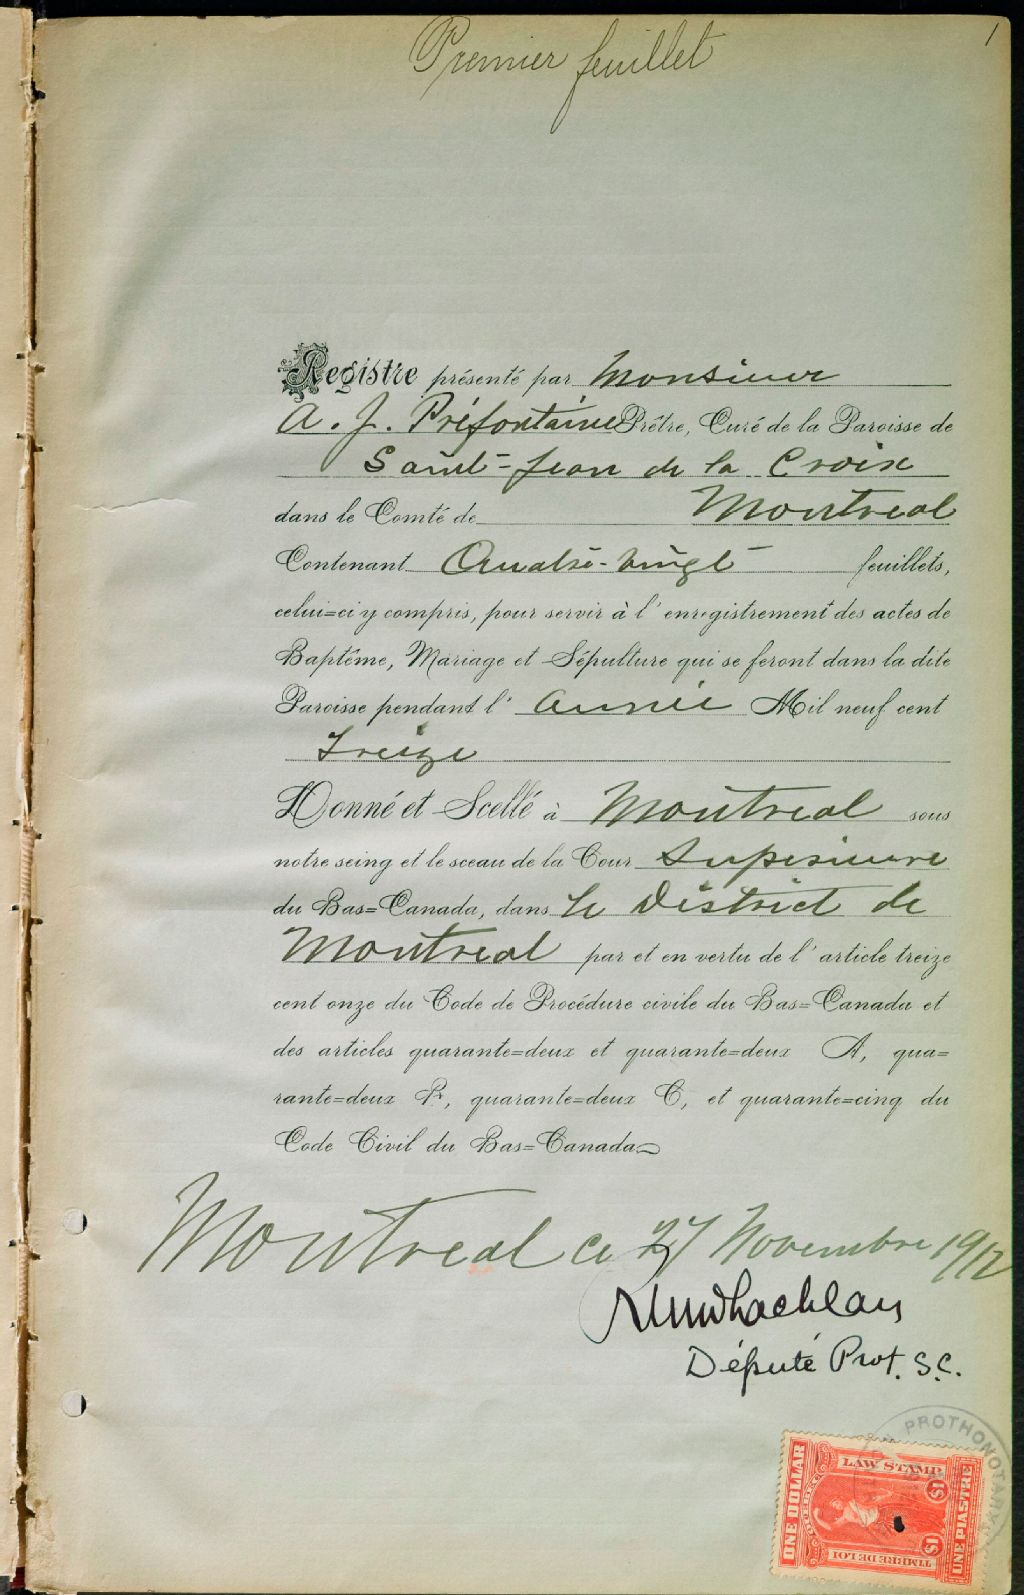 1
Premier feuillet
Registre présenté par Monsieur
A. J. Préfontaine Prêtre, Curé de la Paroisse de
Saint-Jean de la Croix
dans le Comté de Montreal
Contenant Quatre-vingt feuillets,
celui=ci y compris, pour servir à l'enregistrement des actes de
Baptême, Mariage et Sépulture qui se feront dans la dite
Paroisse pendant l'année Mil neuf cent
Treize
Donné et Scellé à Montreal sous
notre seing et le sceau de la Cour Superieure
du Bas=Canada, dans le District de
Montreal par et en vertu de l'article treize
cent onze du Code de Procédure civile du Bas=Canada et
des articles quarante=deux et quarante=deux A, qua=
rante=deux B, quarante=deux C, et quarante=cinq du
Code Civil du Bas=Canada
Montreal ce 27 Novembre 1912
Député Prot. S.C.
PROTHONOTARY
LAW STAMP
ONE DOLLAR
QUEBEC
$1
$1
UNE PIASTRE
TIMBRE DE LOI